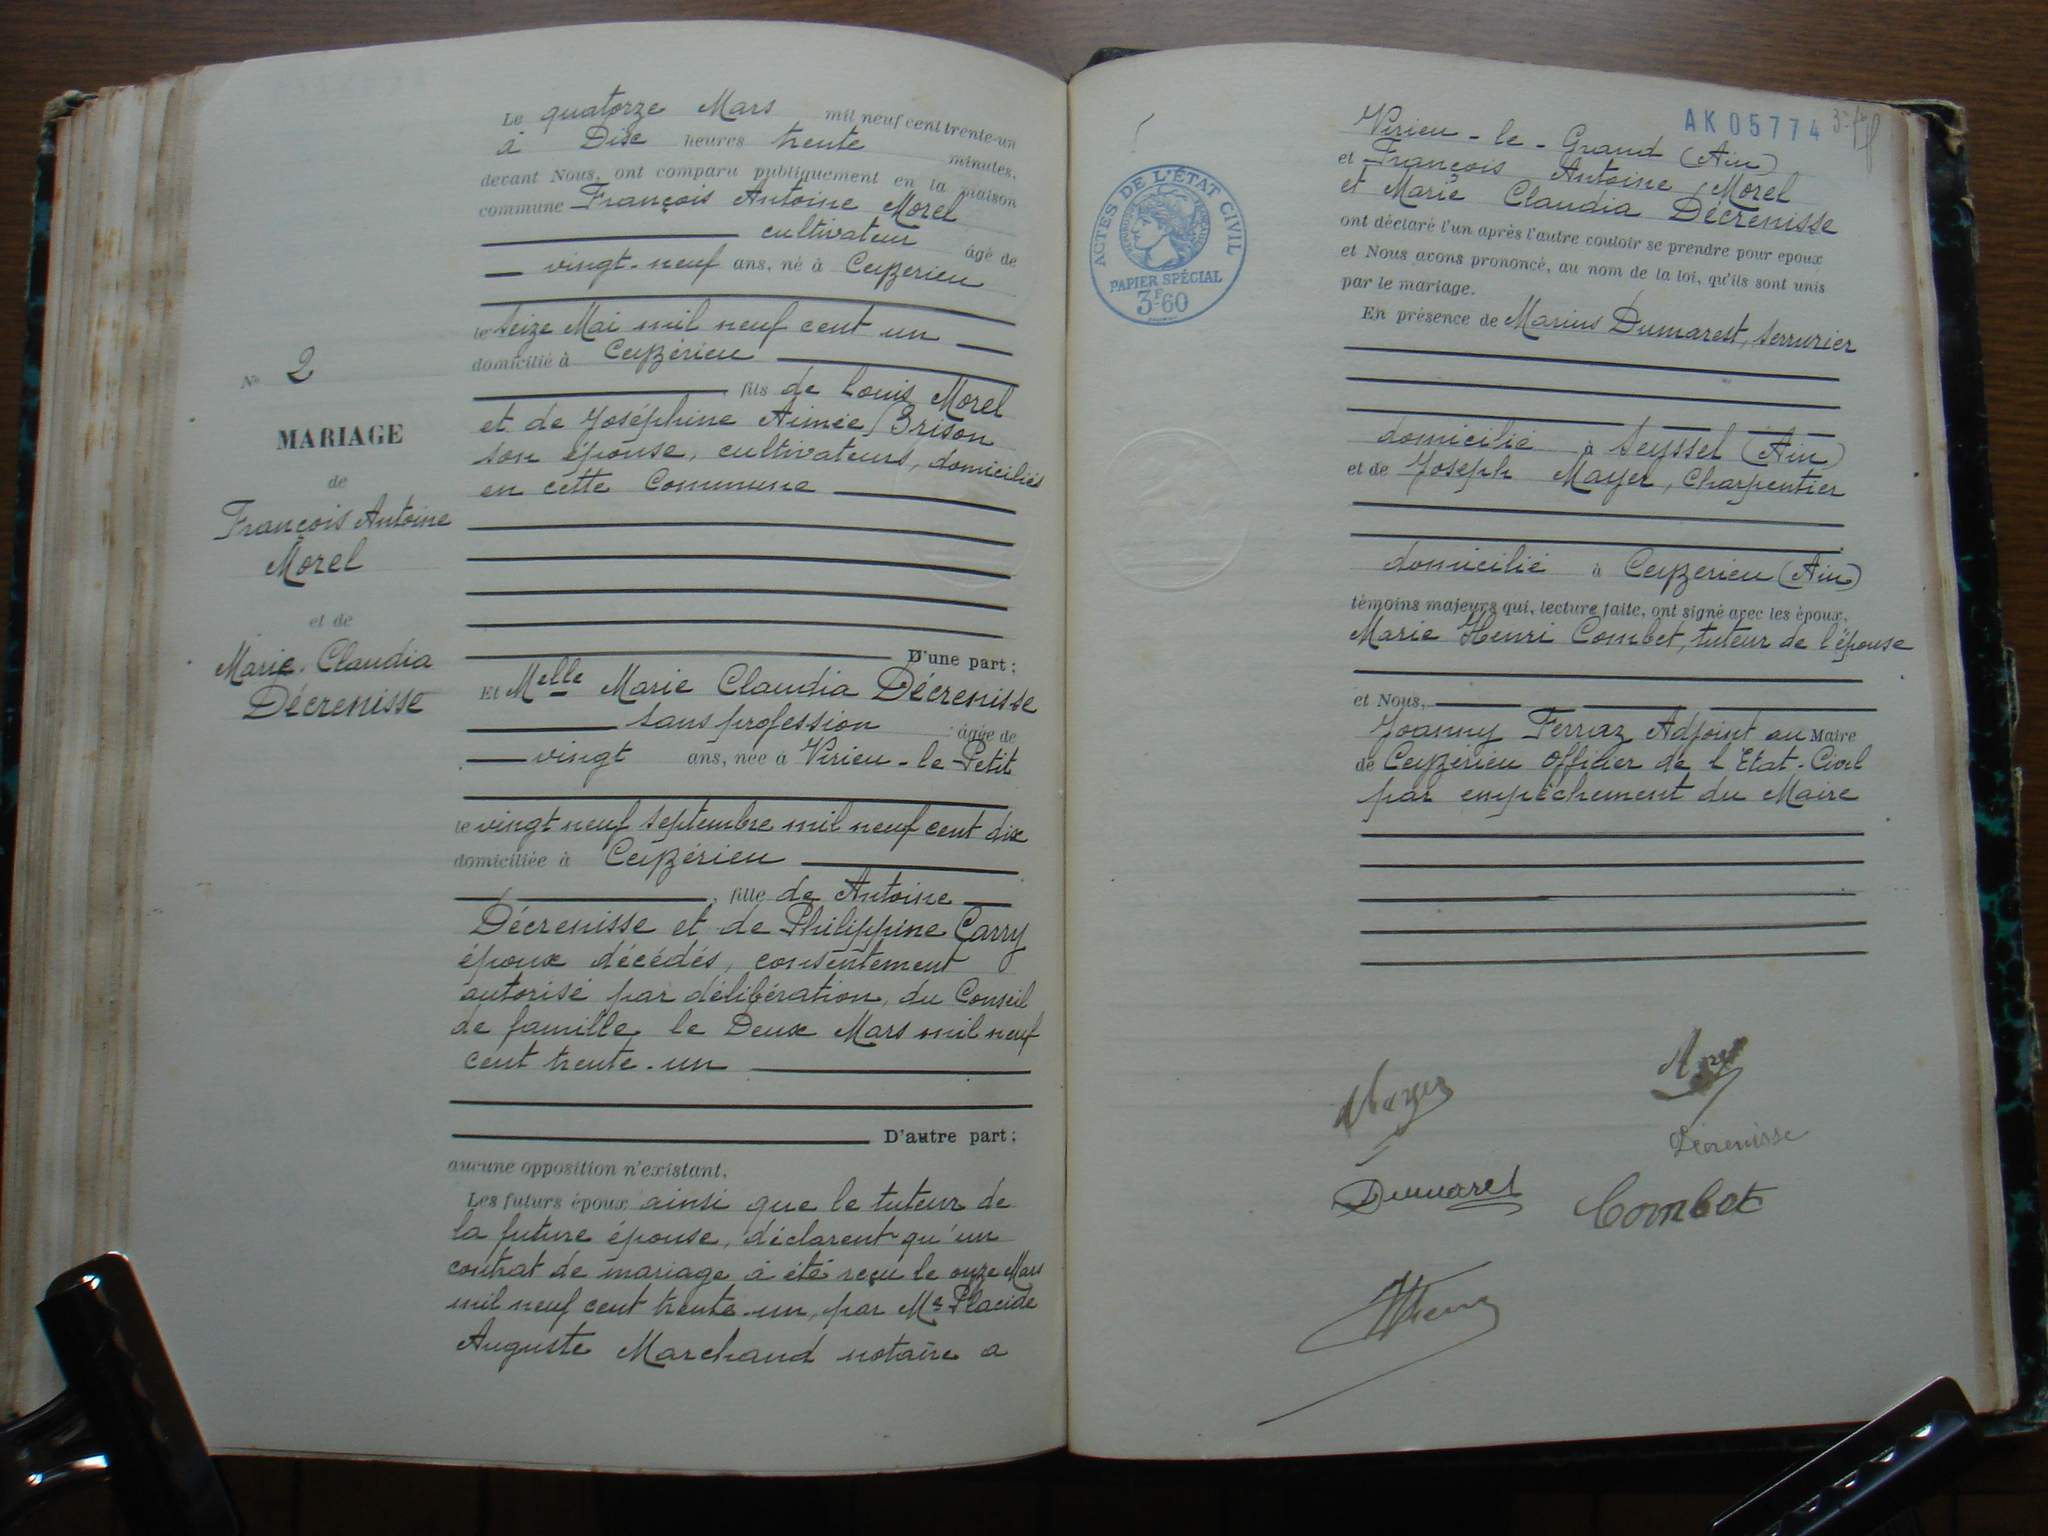 Le quatorze Mars mil neuf cent trente-un
à Dix heures trente minutes,
devant Nous, ont comparu publiquement en la maison
commune François Antoine Morel
cultivateur âgé de
vingt-neuf ans, né à Ceyzerieu
le seize Mai mil neuf cent un
domicilié à Ceyzérieu
fils de Louis Morel
et de Joséphine Aimée Brison
son épouse, cultivateurs, domiciliés
en cette Commune
D'une part;
Nº 2
MARIAGE
de
François Antoine
Morel
et de
Marie-Claudia
Décrenisse
Et Melle Marie Claudia Décrenisse
sans profession âgée de
vingt ans, née à Virieu-le-Petit
le vingt neuf septembre mil neuf cent dix
domiciliée à Ceyzérieu
fille de Antoine
Décrenisse et de Philippine Carry
époux décédés, consentement
autorisé par délibération du Conseil
de famille le Deux Mars mil neuf
cent trente-un
D'autre part;
aucune opposition n'existant,
Les futurs époux ainsi que le tuteur de
la future épouse, déclarent qu'un
contrat de mariage a été reçu le onze Mars
mil neuf cent trente-un, par Me Placide
Auguste Marchand notaire a
AK 05774
ACTES DE L'ÉTAT CIVIL
RÉPUBLIQUE FRANÇAISE
PAPIER SPÉCIAL
3F60
Virieu-le-Grand (Ain)
et François Antoine Morel
et Marie Claudia Décrenisse
ont déclaré l'un après l'autre couloir se prendre pour epoux
et Nous avons prononcé, au nom de la loi, qu'ils sont unis
par le mariage.
En présence de Marius Dumarest, serrurier
domicilié à Seyssel (Ain)
et de Joseph Mayer, Charpentier
domicilié à Ceyzerieu (Ain)
témoins majeurs qui, lecture faite, ont signé avec les époux,
Marie Henri Combet, tuteur de l'épouse
et Nous,
Joanny Ferraz Adjoint au Maire
de Ceyzérieu Officier de l'Etat-Civil
par empêchement du Maire
Mayer
Décrenisse
Dumarest
Combet